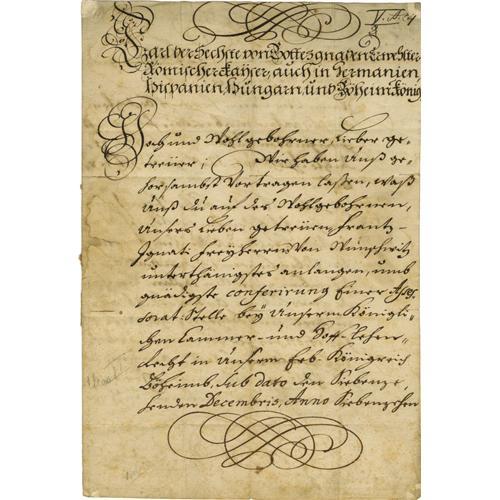 V. A. 4
Carl der Sechste von Gottes gnaden Erwehlter
Römischer Kayser, auch in Germanien,
Hispanien, Hungarn, und Böheimb König
Hoch und Wohlgebohrner, Lieber ge-
treüer; Wir haben Unß ge-
horsambst Vortragen lassen, waß
Unß du auf des Wohlgebohrnen,
Unsers Lieben getreüen Frantz
Ignati Freyherrn von Wunschwitz
unterthänigstes anlangen, umb
gnädigste conferirung Einer Asses-
sorat-Stelle bey Unserm Königli-
chen Cammer- und Hoff-Lehen-
Recht in Unserm Erb-Königreich
Böheimb, sub dato den Siebenze-
henden Decembris, Anno Siebenzehen